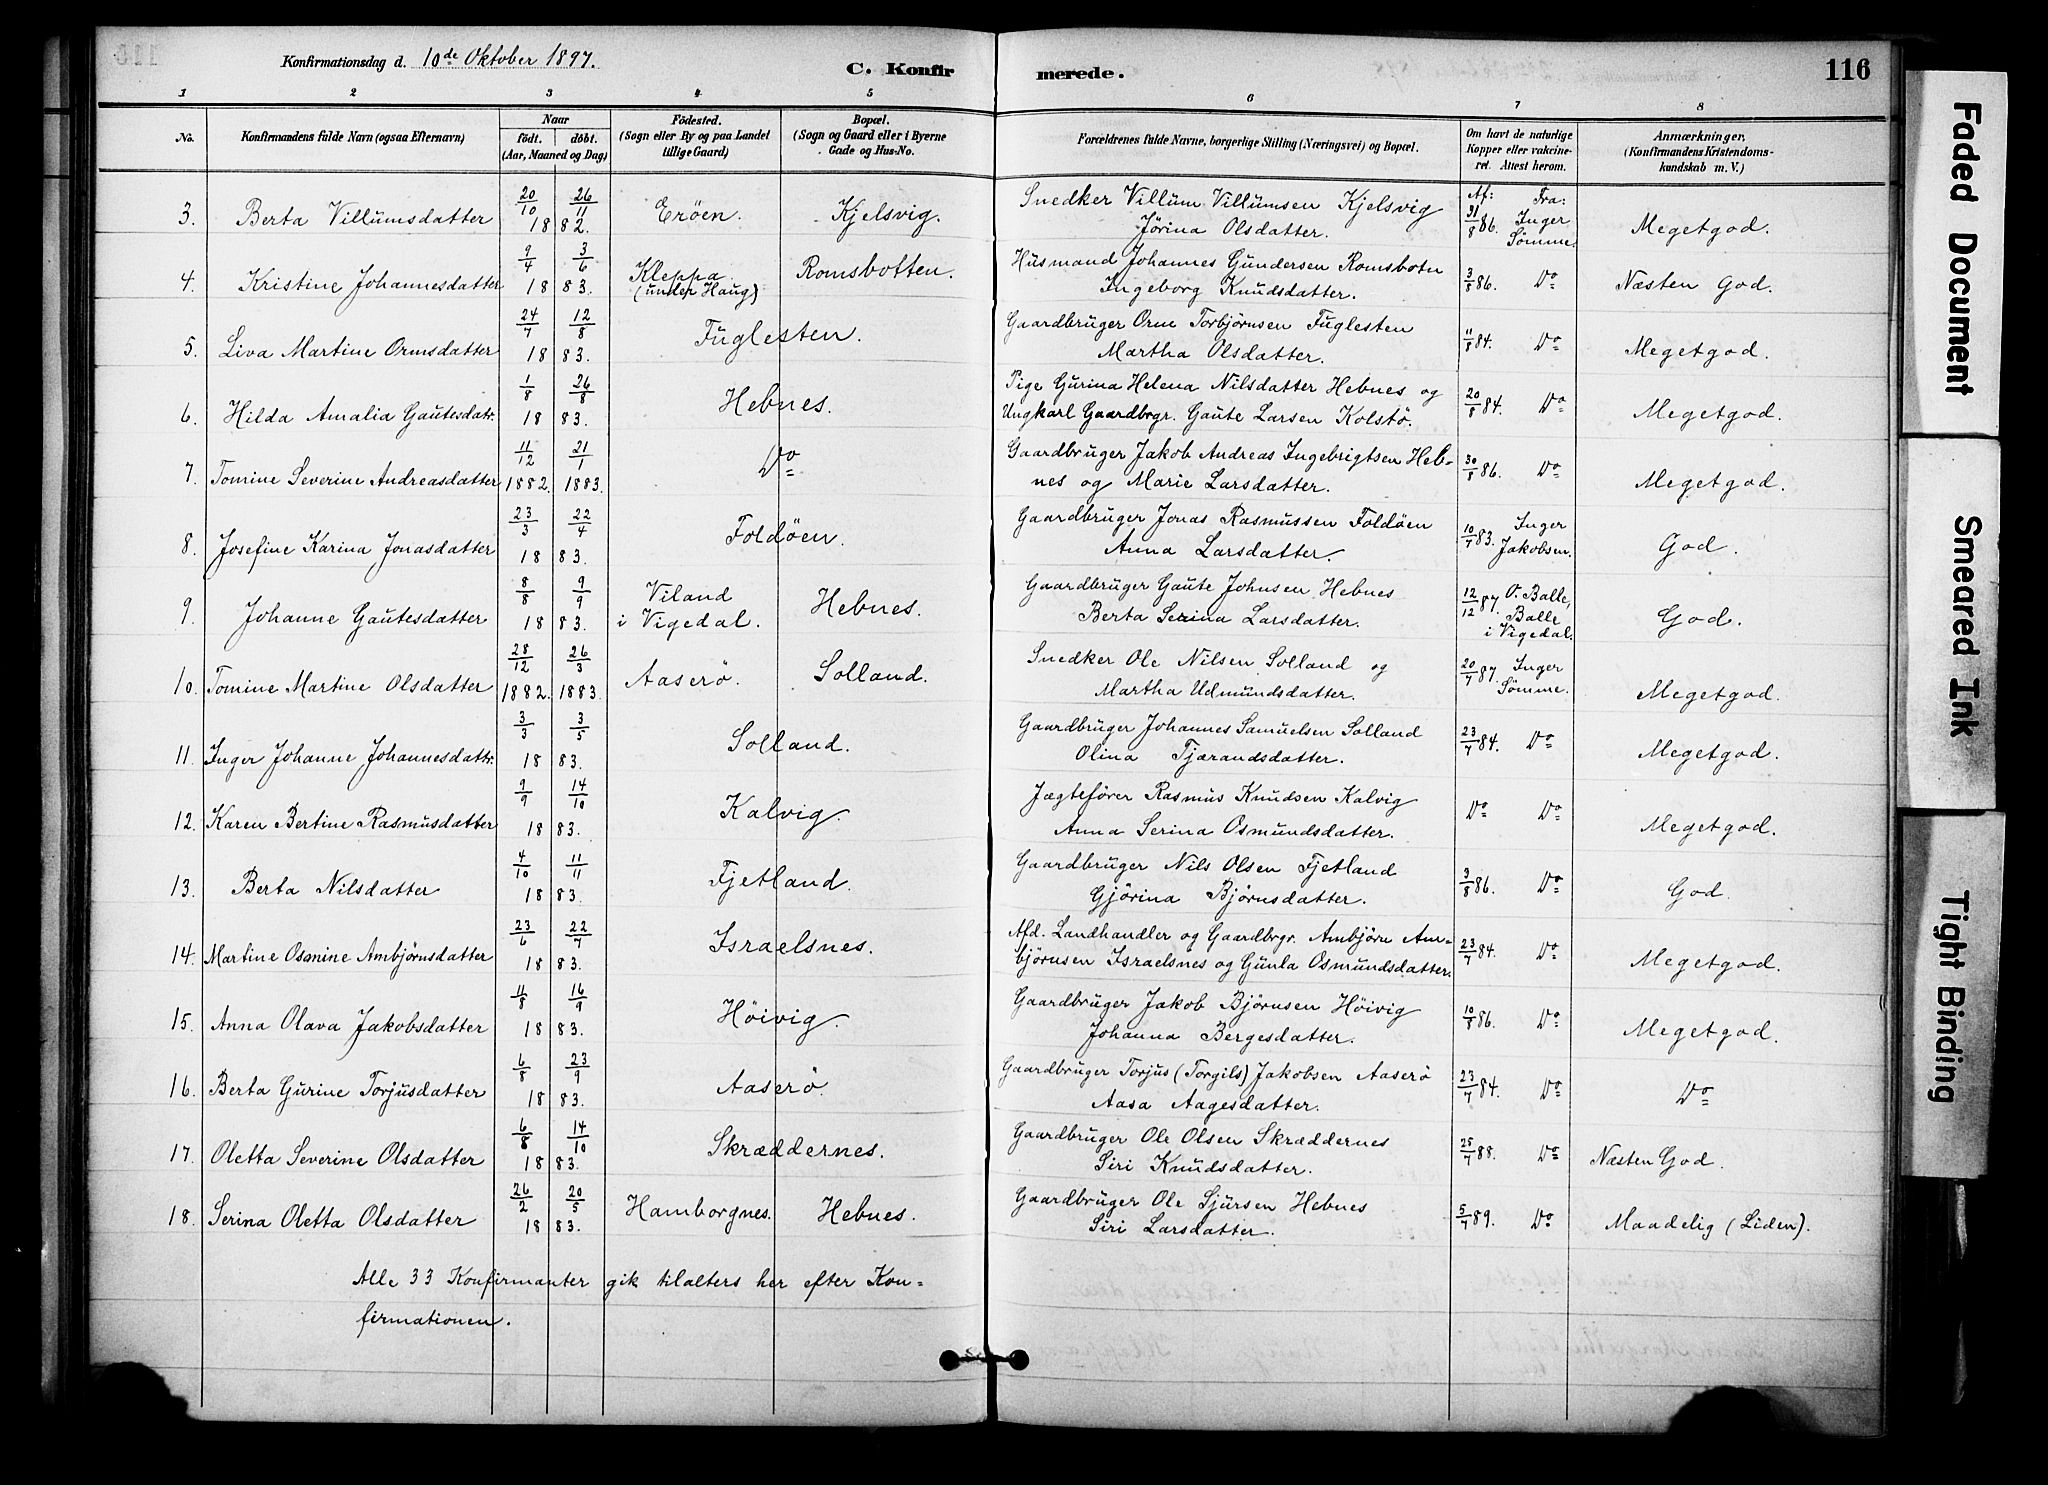 Konfirmationsdag d. 10de Oktober 1897.
C. Konfirmerede.
116
1 2 3 4 5 6 7 8
No.
Konfirmandens fulde Navn (ogsaa Efternavn)
Naar
födt. döbt.
(Aar, Maaned og Dag)
Födested.
(Sogn eller By og paa Landet
tillige Gaard)
Bopæl.
(Sogn og Gaard eller i Byerne
Gade og Hus-No.
Forældrenes fulde Navne, borgerlige Stilling (Næringsvei) og Bopæl.
Om havt de naturlige
Kopper eller vakcine-
ret. Attest herom.
Anmærkninger.
(Konfirmandens Kristendoms-
kundskab m. V.)
Af: Fra:
3. Berta Villumsdatter 20/10 26/11 1882. Eröen. Kjelsvig. Snedker Villum Villumsen Kjelsvig
Jörina Olsdatter. 31/8 86. Inger Sömme. Megetgod.
4. Kristine Johannesdatter 9/4 3/6 1883. Kleppa (under Haug) Romsbotten. Husmand Johannes Gundersen Romsbotn
Ingeborg Knudsdatter. 3/8 86. Do Næsten God.
5. Liva Martine Ormsdatter 24/7 12/8 1883. Fuglesten. Gaardbruger Orm Torbjörnsen Fuglesten
Martha Olsdatter. 11/8 84. Do Megetgod.
6. Hilda Amalia Gautesdatr. 1/8 26/8 1883. Hebnes. Pige Gurina Helena Nilsdatter Hebnes og
Ungkarl Gaardbrgr. Gaute Larsen Kolstö. 20/8 84. Do Megetgod.
7. Tomine Severine Andreasdatter 11/12 1882. 21/1 1883. Do Gaardbruger Jakob Andreas Ingebrigtsen Heb-
nes og Marie Larsdatter. 30/8 86. Do Megetgod.
8. Josefine Karina Jonasdatter 23/3 22/4 1883. Foldöen. Gaardbruger Jonas Rasmussen Foldöen
Anna Larsdatter. 10/7 83. Inger Jakobsen. God.
9. Johanne Gautesdatter 8/8 9/9 1883. Viland i Vigedal. Hebnes. Gaardbruger Gaute Johnsen Hebnes
Berta Serina Larsdatter. 12/12 87. O. Balle, Balle i Vigedal. God.
10. Tomine Martine Olsdatter 28/12 1882. 26/3 1883. Aaserö. Solland. Snedker Ole Nilsen Solland og
Martha Udmundsdatter. 20/7 87. Inger Sömme. Megetgod.
11. Inger Johanne Johannesdattr. 3/3 3/5 1883. Solland. Gaardbruger Johannes Samuelsen Solland
Olina Tjærandsdatter. 23/7 84. Do Megetgod.
12. Karen Bertine Rasmusdatter 9/9 14/10 1883. Kalvig. Jægteförer Rasmus Knudsen Kalvig
Anna Serina Osmundsdatter. Do Do Megetgod.
13. Berta Nilsdatter 4/10 11/11 1883. Fjetland. Gaardbruger Nils Olsen Fjetland
Gjörina Björnsdatter. 3/8 86. Do God.
14. Martine Osmine Ambjörnsdatter 23/6 22/7 1883. Israelsnes. Afd. Landhandler og Gaardbrgr. Ambjörn Am-
björnsen Israelsnes og Gunla Osmundsdatter. 23/7 84. Do Megetgod.
15. Anna Olava Jakobsdatter 11/8 16/9 1883. Höivig. Gaardbruger Jakob Björnsen Höivig
Johanna Bergesdatter. 10/8 86. Do Megetgod.
16. Berta Gurine Torjusdatter 6/8 23/9 1883. Aaserö. Gaardbruger Torjus (Torgils) Jakobsen Aaserö
Aasa Aagesdatter. 23/7 84. Do Do
17. Oletta Severine Olsdatter 6/8 14/10 1883. Skræddernes. Gaardbruger Ole Olsen Skræddernes
Siri Knudsdatter. 25/7 88. Do Næsten God.
18. Serina Oletta Olsdatter 26/2 20/5 1883. Hamborgnes. Hebnes. Gaardbruger Ole Sjursen Hebnes
Siri Larsdatter. 5/7 89. Do Maadelig (Liden).
Alle 33 Konfirmanter gik tilalters her efter Kon-
firmationen.
Faded Document
Smeared Ink
Tight Binding